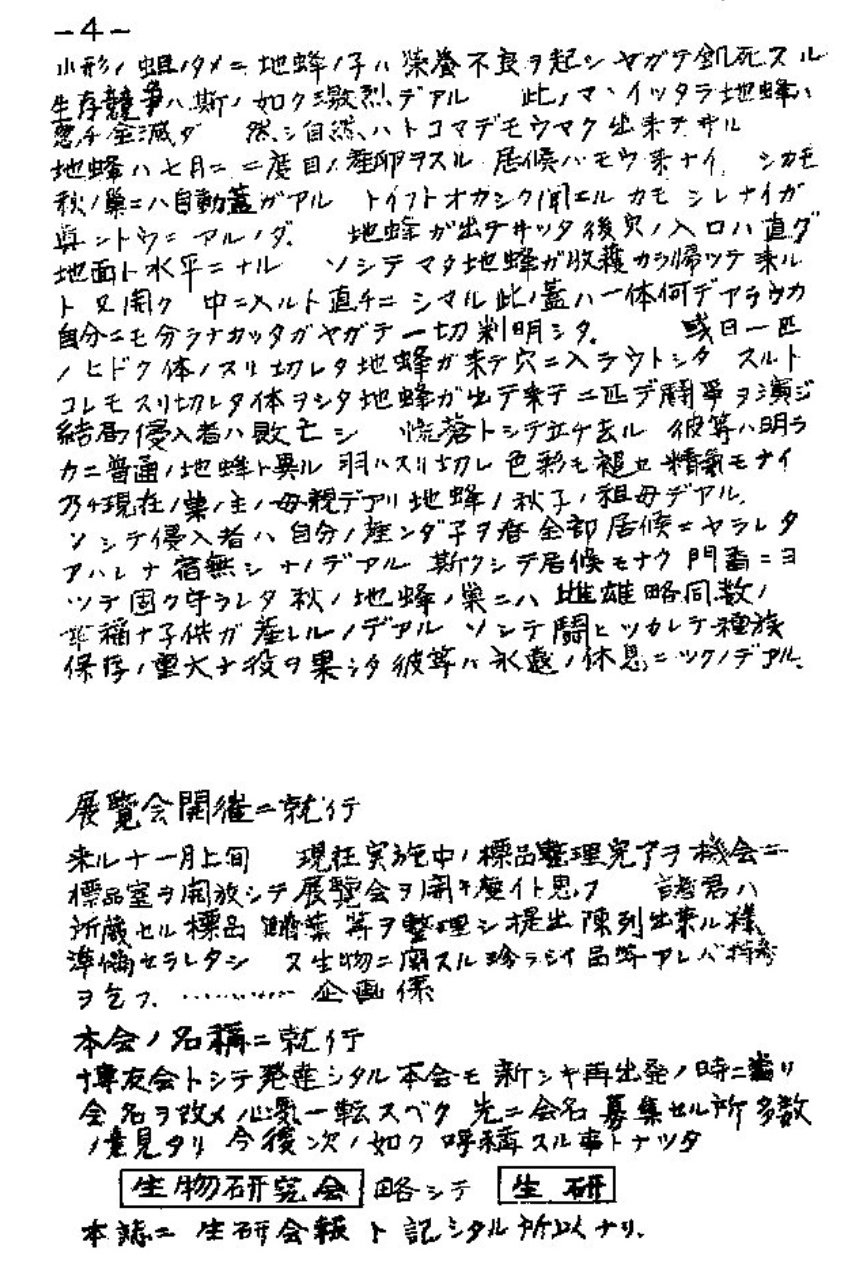 -4-
小形ノ蛆ノタメニ 地蜂ノ子ハ 栄養不良ヲ起シ ヤガテ飢死スル
生存競争ハ斯ノ如ク激烈デアル 此ノマヽイツタラ地蜂ハ
忽チ全滅ダ 然シ自然ハトコマデモウマク出来テヰル
地蜂ハ七月ニ 二度目ノ産卵ヲスル 居候ハモウ来ナイ シカモ
秋ノ巣ニハ自動蓋ガアル トイフトオカシク聞エルカモ シレナイガ
真ントウニ アルノダ。 地蜂ガ出テサッタ後穴ノ入口ハ直グ
地面ト水平ニナル ソシテマタ地蜂ガ収穫カラ帰ッテ来ル
ト又開ク 中ニ入ルト直チニ シマル 此ノ蓋ハ一体何デアラウカ
自分ニモ分ラナカッタガヤガテ一切判明シタ。 或日一匹
ノヒドク体ノスリ切レタ地蜂ガ来テ穴ニ入ラウトシタ スルト
コレモスリ切レタ体ヲシタ地蜂ガ出テ来テ二匹デ闘争ヲ演ジ
結局侵入者ハ敗亡シ 慌蒼トシテ立チ去ル 彼等ハ明ラ
カニ普通ノ地蜂ト異ル 羽ハスリ切レ 色彩モ褪セ 精気モナイ
乃チ現在ノ巣ノ主ノ母親デアリ 地蜂ノ秋子ノ祖母デアル。
ソシテ侵入者ハ 自分ノ産ンダ子ヲ春全部居候ニヤラレタ
アハレナ宿無シナノデアル 斯クシテ居候モナク 門番ニヨ
ツテ固ク守ラレタ 秋ノ地蜂ノ巣ニハ 雌雄略同数ノ
幸福ナ子供ガ産レルノデアル ソシテ闘ヒツカレテ種族
保存ノ重大ナ役ヲ果シタ彼等ハ永遠ノ休息ニツクノデアル。
展覧会開催ニ就イテ
来ル十一月上旬 現在実施中ノ標品整理完了ヲ機会ニ
標品室ヲ開放シテ展覧会ヲ開キ度イト思フ 諸君ハ
所蔵セル標品 等ヲ整理シ提出陳列出来ル様
準備セラレタシ 又生物ニ関スル珍ラシイ品等アレバ持参
ヲ乞フ。 ………… 企画係
本会ノ名称ニ就イテ
博友会トシテ発達シタル本会モ 新シキ再出発ノ時ニ当リ
会名ヲ改メ心気一転スベク 先ニ会名募集セル所多数
ノ意見アリ 今後次ノ如ク呼称スル事トナツタ
生物研究会 略シテ 生研
本誌ニ 生研会報ト記シタル所以ナリ.